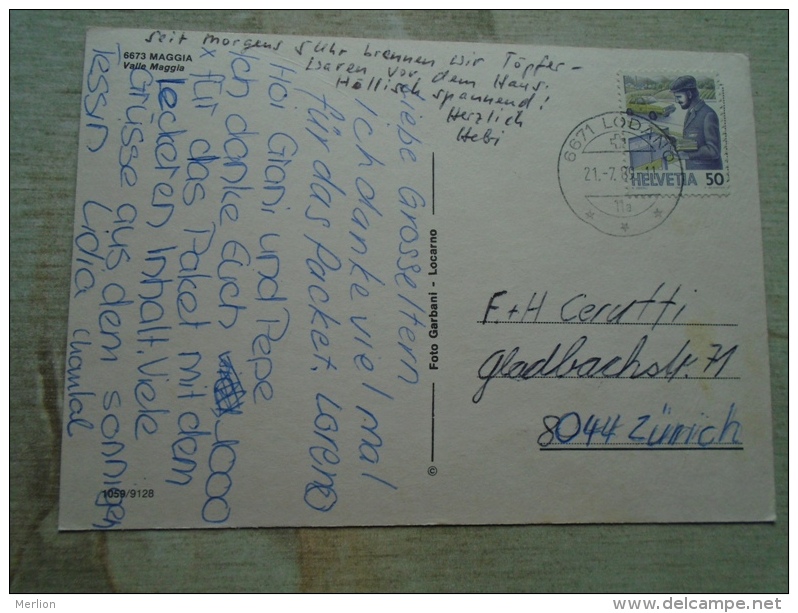 seit morgens 5 Uhr brennen wir Töpfer -
waren vor dem Haus.
Höllisch spannend!
Herzlich
Hebi
6673 MAGGIA
Valle Maggia
Liebe Grosseltern
Ich danke viel mal
für das Packet. Loreno
Hoi Gioni und Pepe
Ich danke Euch 1000
x für das Paket mit dem
leckeren Inhalt. Viele
Grüsse aus dem sonnigen
Tessin Lidia Chantal
1059/9128
© Foto Garbani - Locarno
6671 LODANO
21.-7.89.-11
11a
HELVETIA 50
F.+H Cerutti
Gladbachstr. 71
8044 Zürich
Merlion
delcampe.net